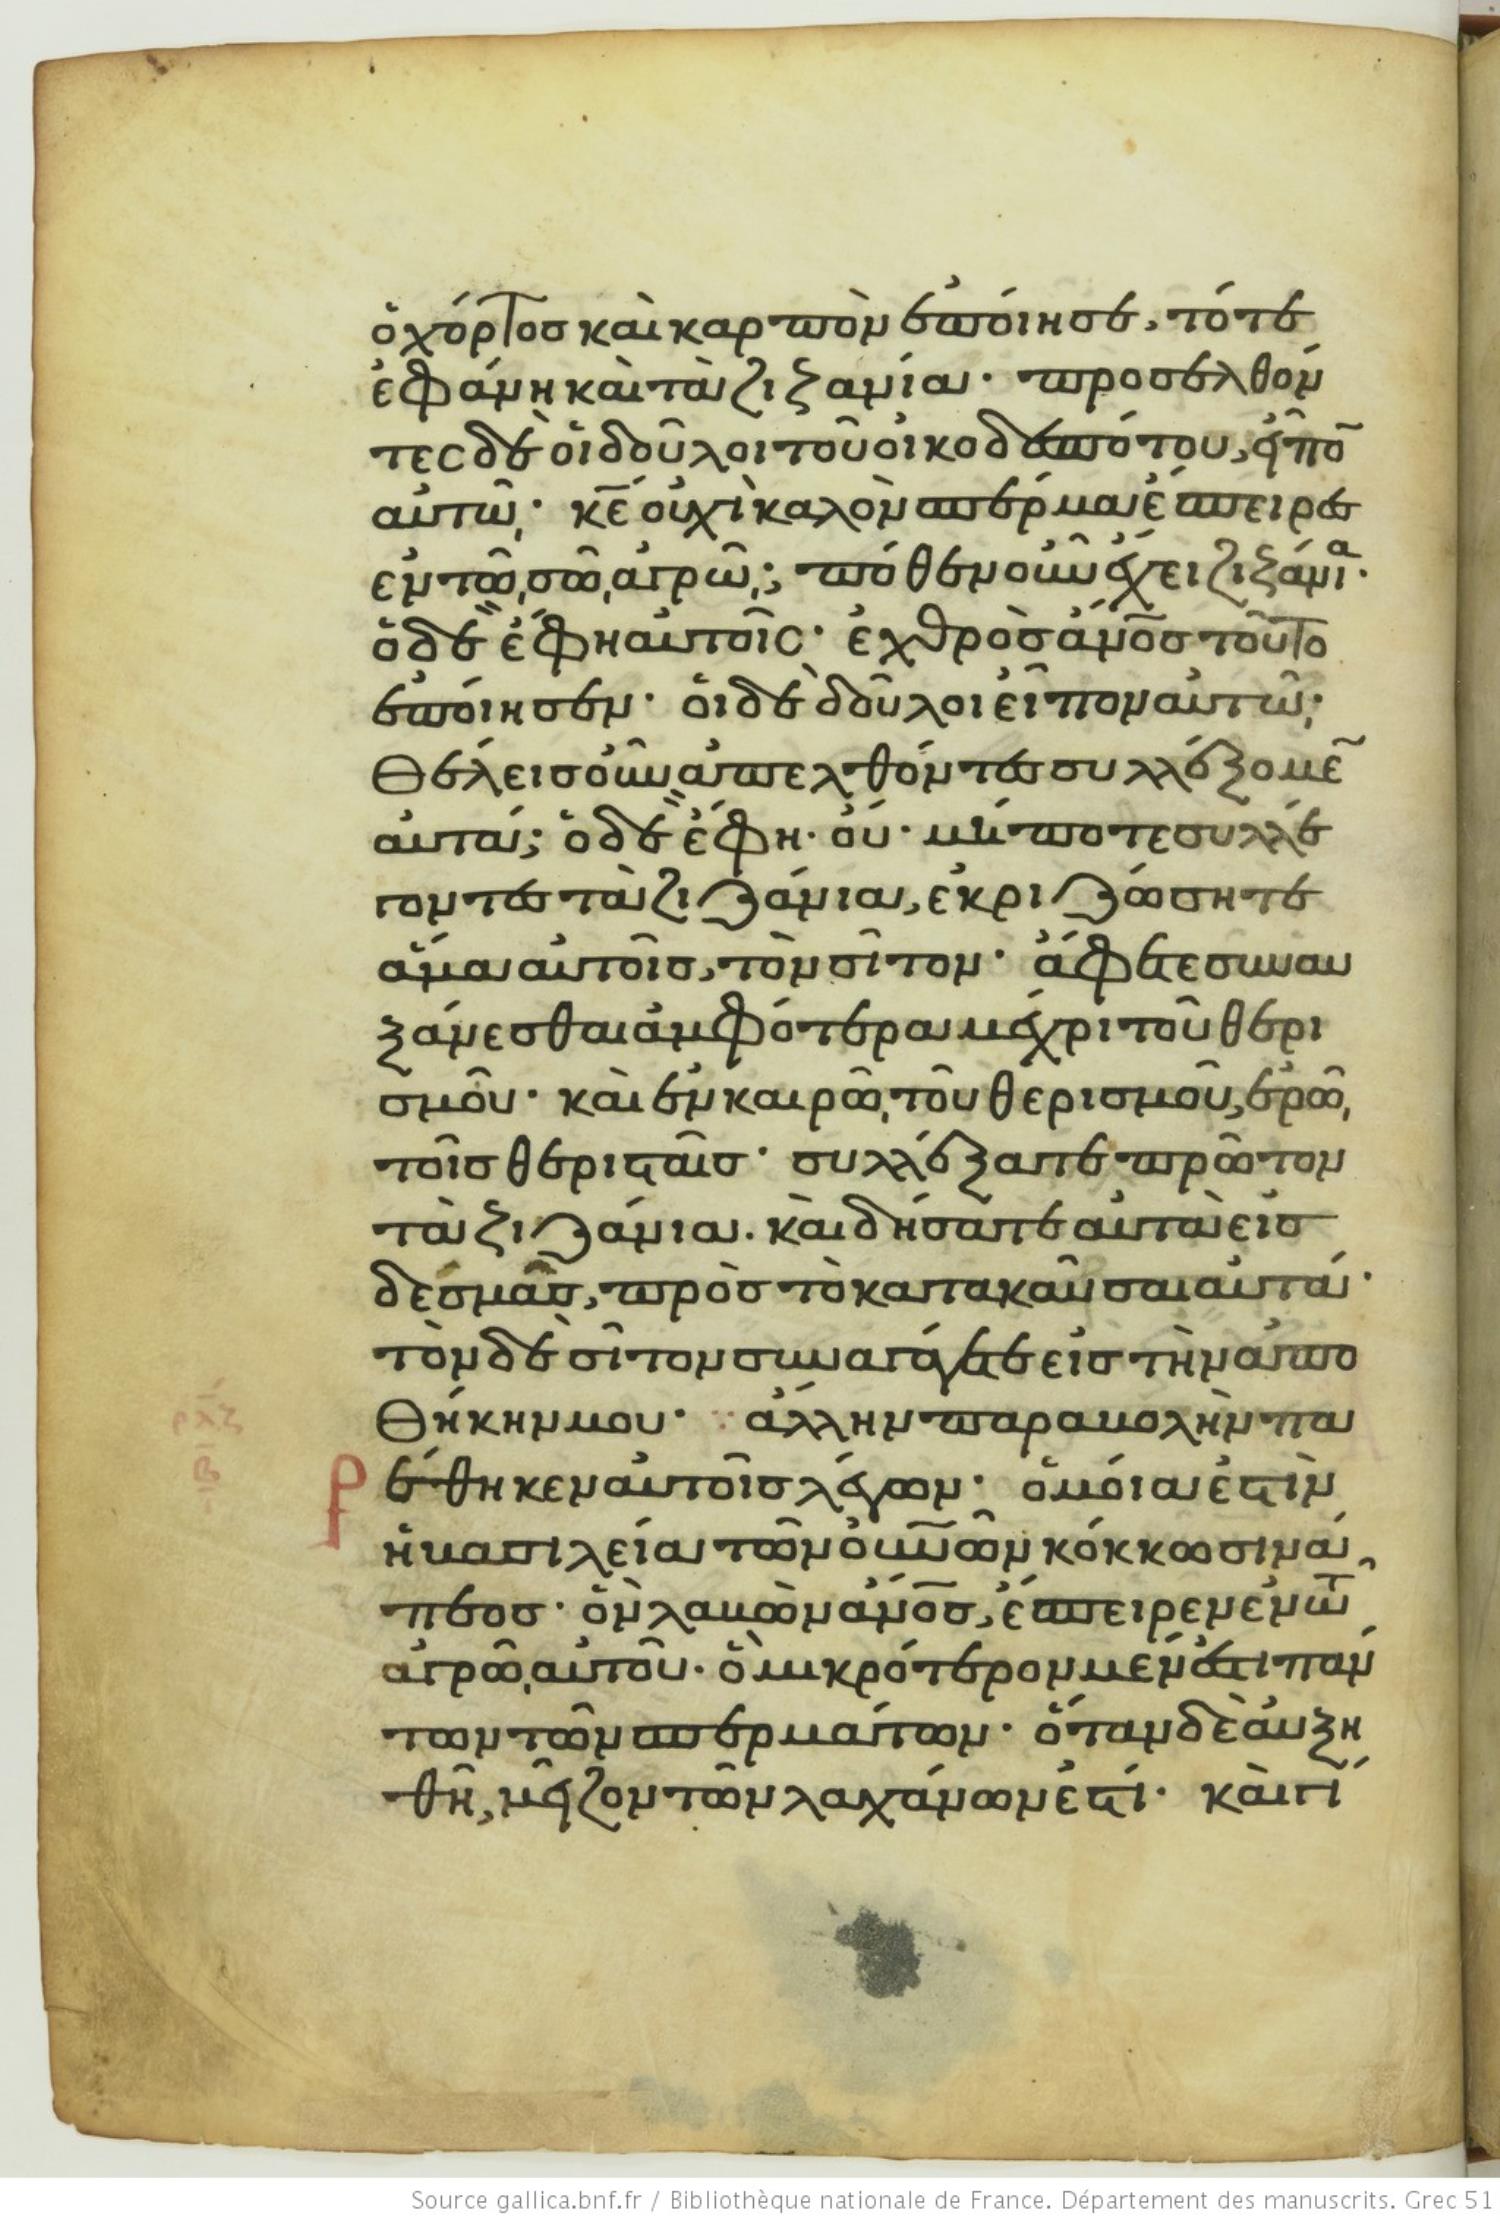 ὁ χόρτος καὶ καρπὸν ἐποίησε, τότε
ἐφάνη καὶ τὰ ζιζανία· προσελθόν
τες δὲ ὁι δοῦλοι τοῦ οἰκοδεσπότου, εἶπο̅
αὐτῶ· κ̅ε̅ οὐχὶ καλὸν σπέρμα ἔσπειρας
ἐν τῶ σῶ ἀγρῶ; πόθεν οὖν ἔχει ζιζάνια·
ὁ δὲ ἔφη αὐτοῖς· ἐχθρὸς ἄν̅ο̅ς τοῦτο
ἐποίησεν· ὁι δὲ δοῦλοι εἶπον αὐτῶ;
Θέλεις οὖν ἀπελθόντες συλλέξομε̅
αὐτά; ὁ δὲ ἔφη· οὐ· μήποτε συλλέ
γοντες τὰ ζιζάνια, ἐκριζώσητε
ἅμα αὐτοῖς, τὸν σῖτον· ἄφετε συναυ
ξάνεσθαι ἀμφότερα μέχρι τοῦ θερι
σμοῦ· καὶ ἐν καιρῶ τοῦ θερισμοῦ, ἐρῶ
τοῖς θερισταῖς· συλλέξατε πρῶτον
τὰ ζιζάνια. καὶ δήσατε αὐτὰ εἰς
δέσμας, πρὸς τὸ κατακαῦσαι αὐτά·
τὸν δὲ σῖτον συναγάγετε εἰς τὴν ἀπο
Θήκην μου· ἄλλην παραβολὴν πα
ρλζ
β
ρέθηκεν αὐτοῖς λέγων· ὁμόια ἐστὶν
ἡ βασιλεία τῶν οὐν̅ῶν κόκκω σινά
πεος· ὃν λαβὼν ἄν̅ο̅ς, ἔσπειρεν ἐν τῶ
ἀγρῶ αὐτοῦ. ὃ μικρότερον μέν ἐστι πάν
των τῶν σπερμάτων· ὅταν δὲ ἀυξη
θῆ, μεῖζον τῶν λαχάνων ἐστί· καὶ γί
Source gallica.bnf.fr / Bibliothèque nationale de France. Département des manuscrits. Grec 51